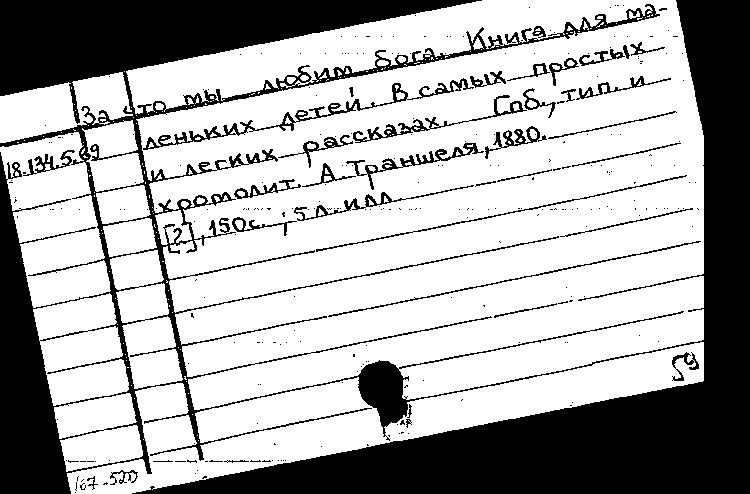 За что мы любим бога. Книга для ма-
леньких детей. В самых простых
18.134.5.69
и легких рассказах. Спб., тип. и
хромолит. А. Траншеля, 1880.
[2], 150с. ; 5 л. илл.
59
167-520